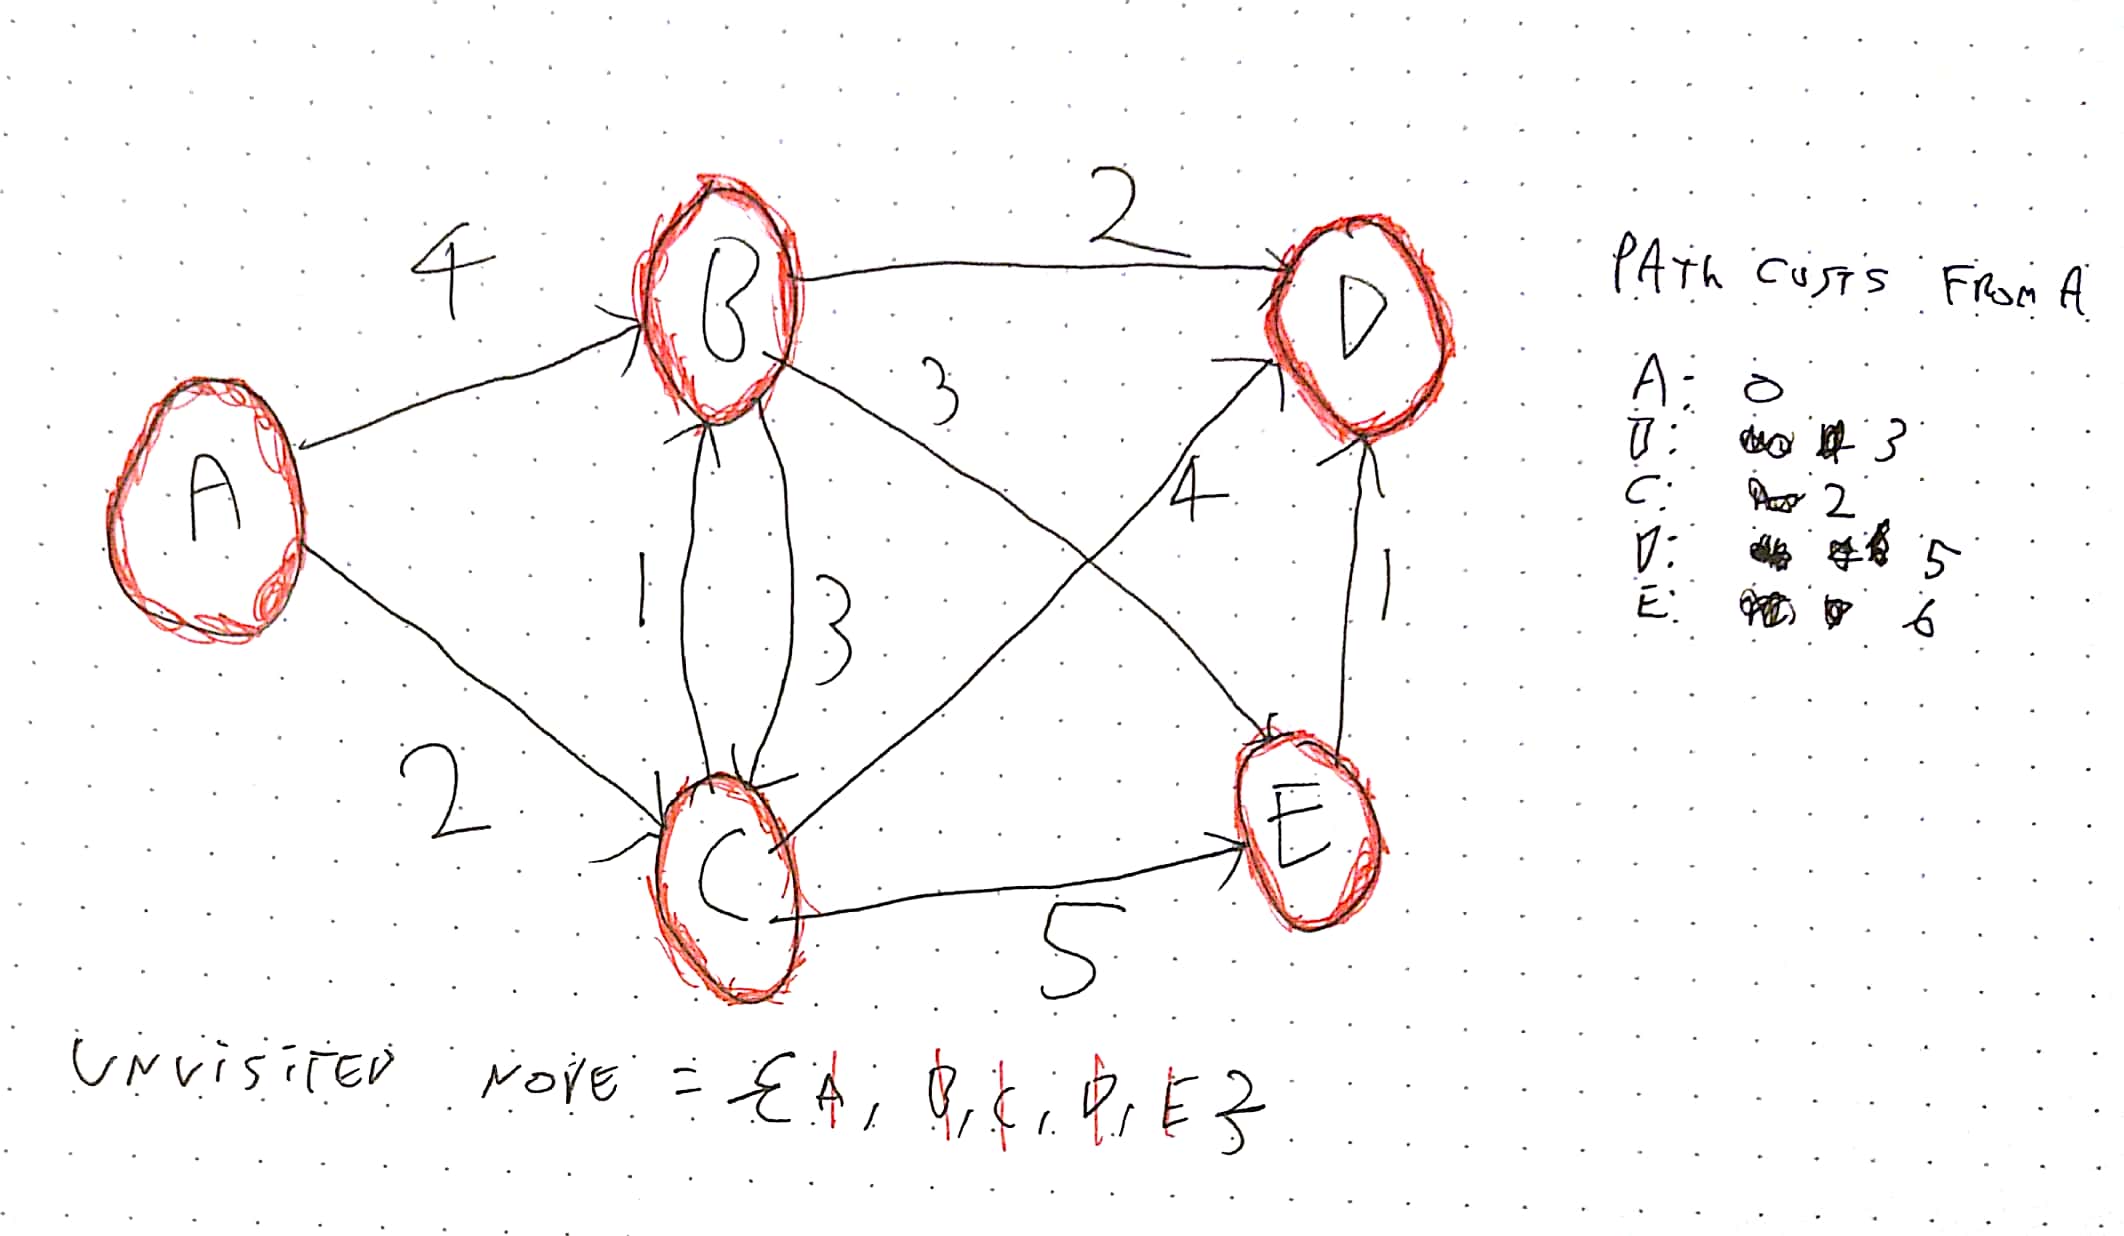 2
4
B
D
3
A
4
1
3
1
2
C
E
5
PATh COSTS FROM A
A: 0
B: 3
C: 2
D: 5
E: 6
UNVISITED NODE = {A, B, C, D, E}